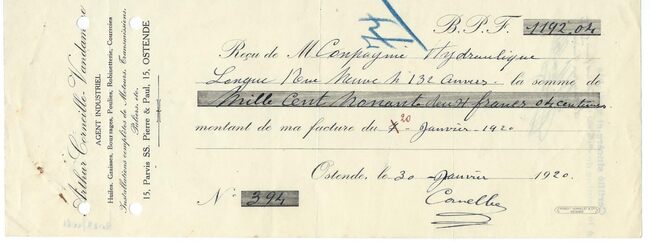 Arthur Corneille Vendamme
AGENT INDUSTRIEL
Huiles, Graisses, Bourrages, Poulies, Robinetterie, Courroies
Installations complètes de Moteurs, Transmissions,
Paliers, etc.
15, Parvis SS. Pierre & Paul, 15, OSTENDE
B.P.F. 1192.04
Reçu de M Compagnie Hydraulique
Longue Rue Neuve N 132 Anvers la somme de
Mille Cent Nonante deux francs 04 centimes
montant de ma facture du 20 Janvier 1920
Ostende, le 30 Janvier 1920.
N° 394